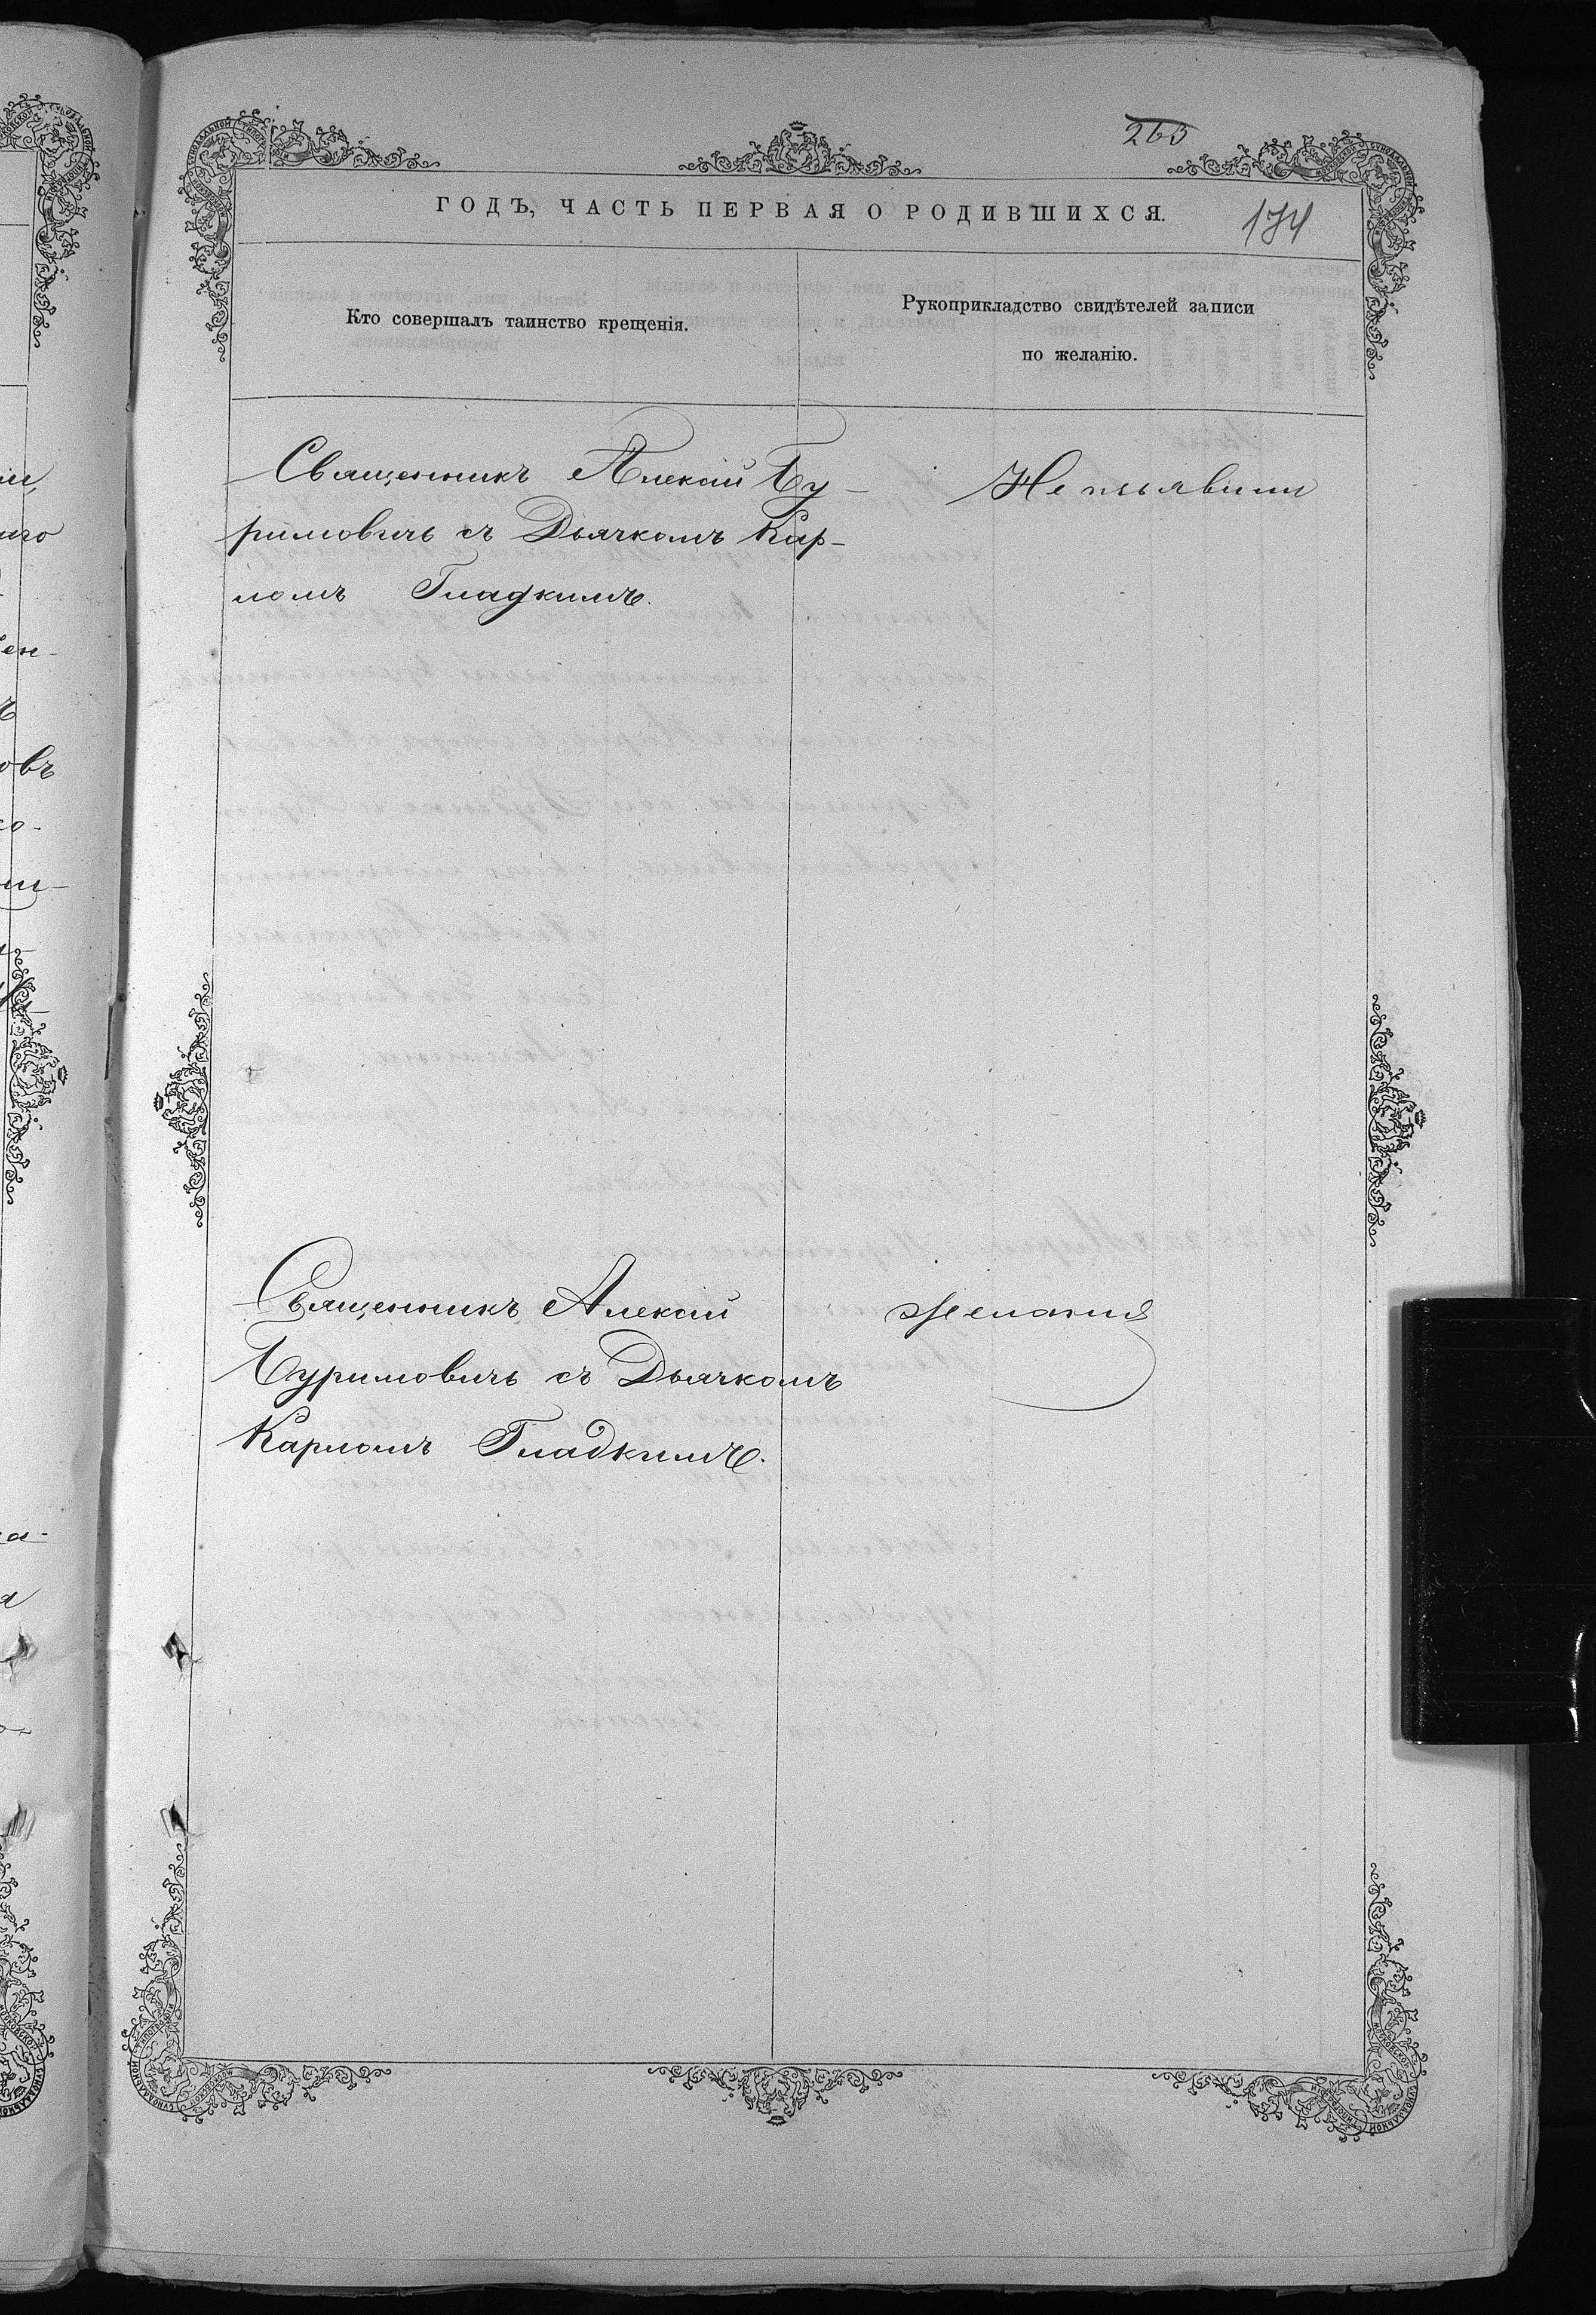 263
ГОДЪ, ЧАСТЬ ПЕРВАЯ О РОДИВШИХСЯ.
174
Кто совершалъ таинство крещенія.
Рукоприкладство свидѣтелей записи
по желанію.
Священникъ Алексій Бу-
римовичъ съ Дьячкомъ Кар-
помъ Гладкимъ.
Не изъявили
Священникъ Алексій
Буримовичъ съ Дьячкомъ
Карпомъ Гладкимъ.
желанія